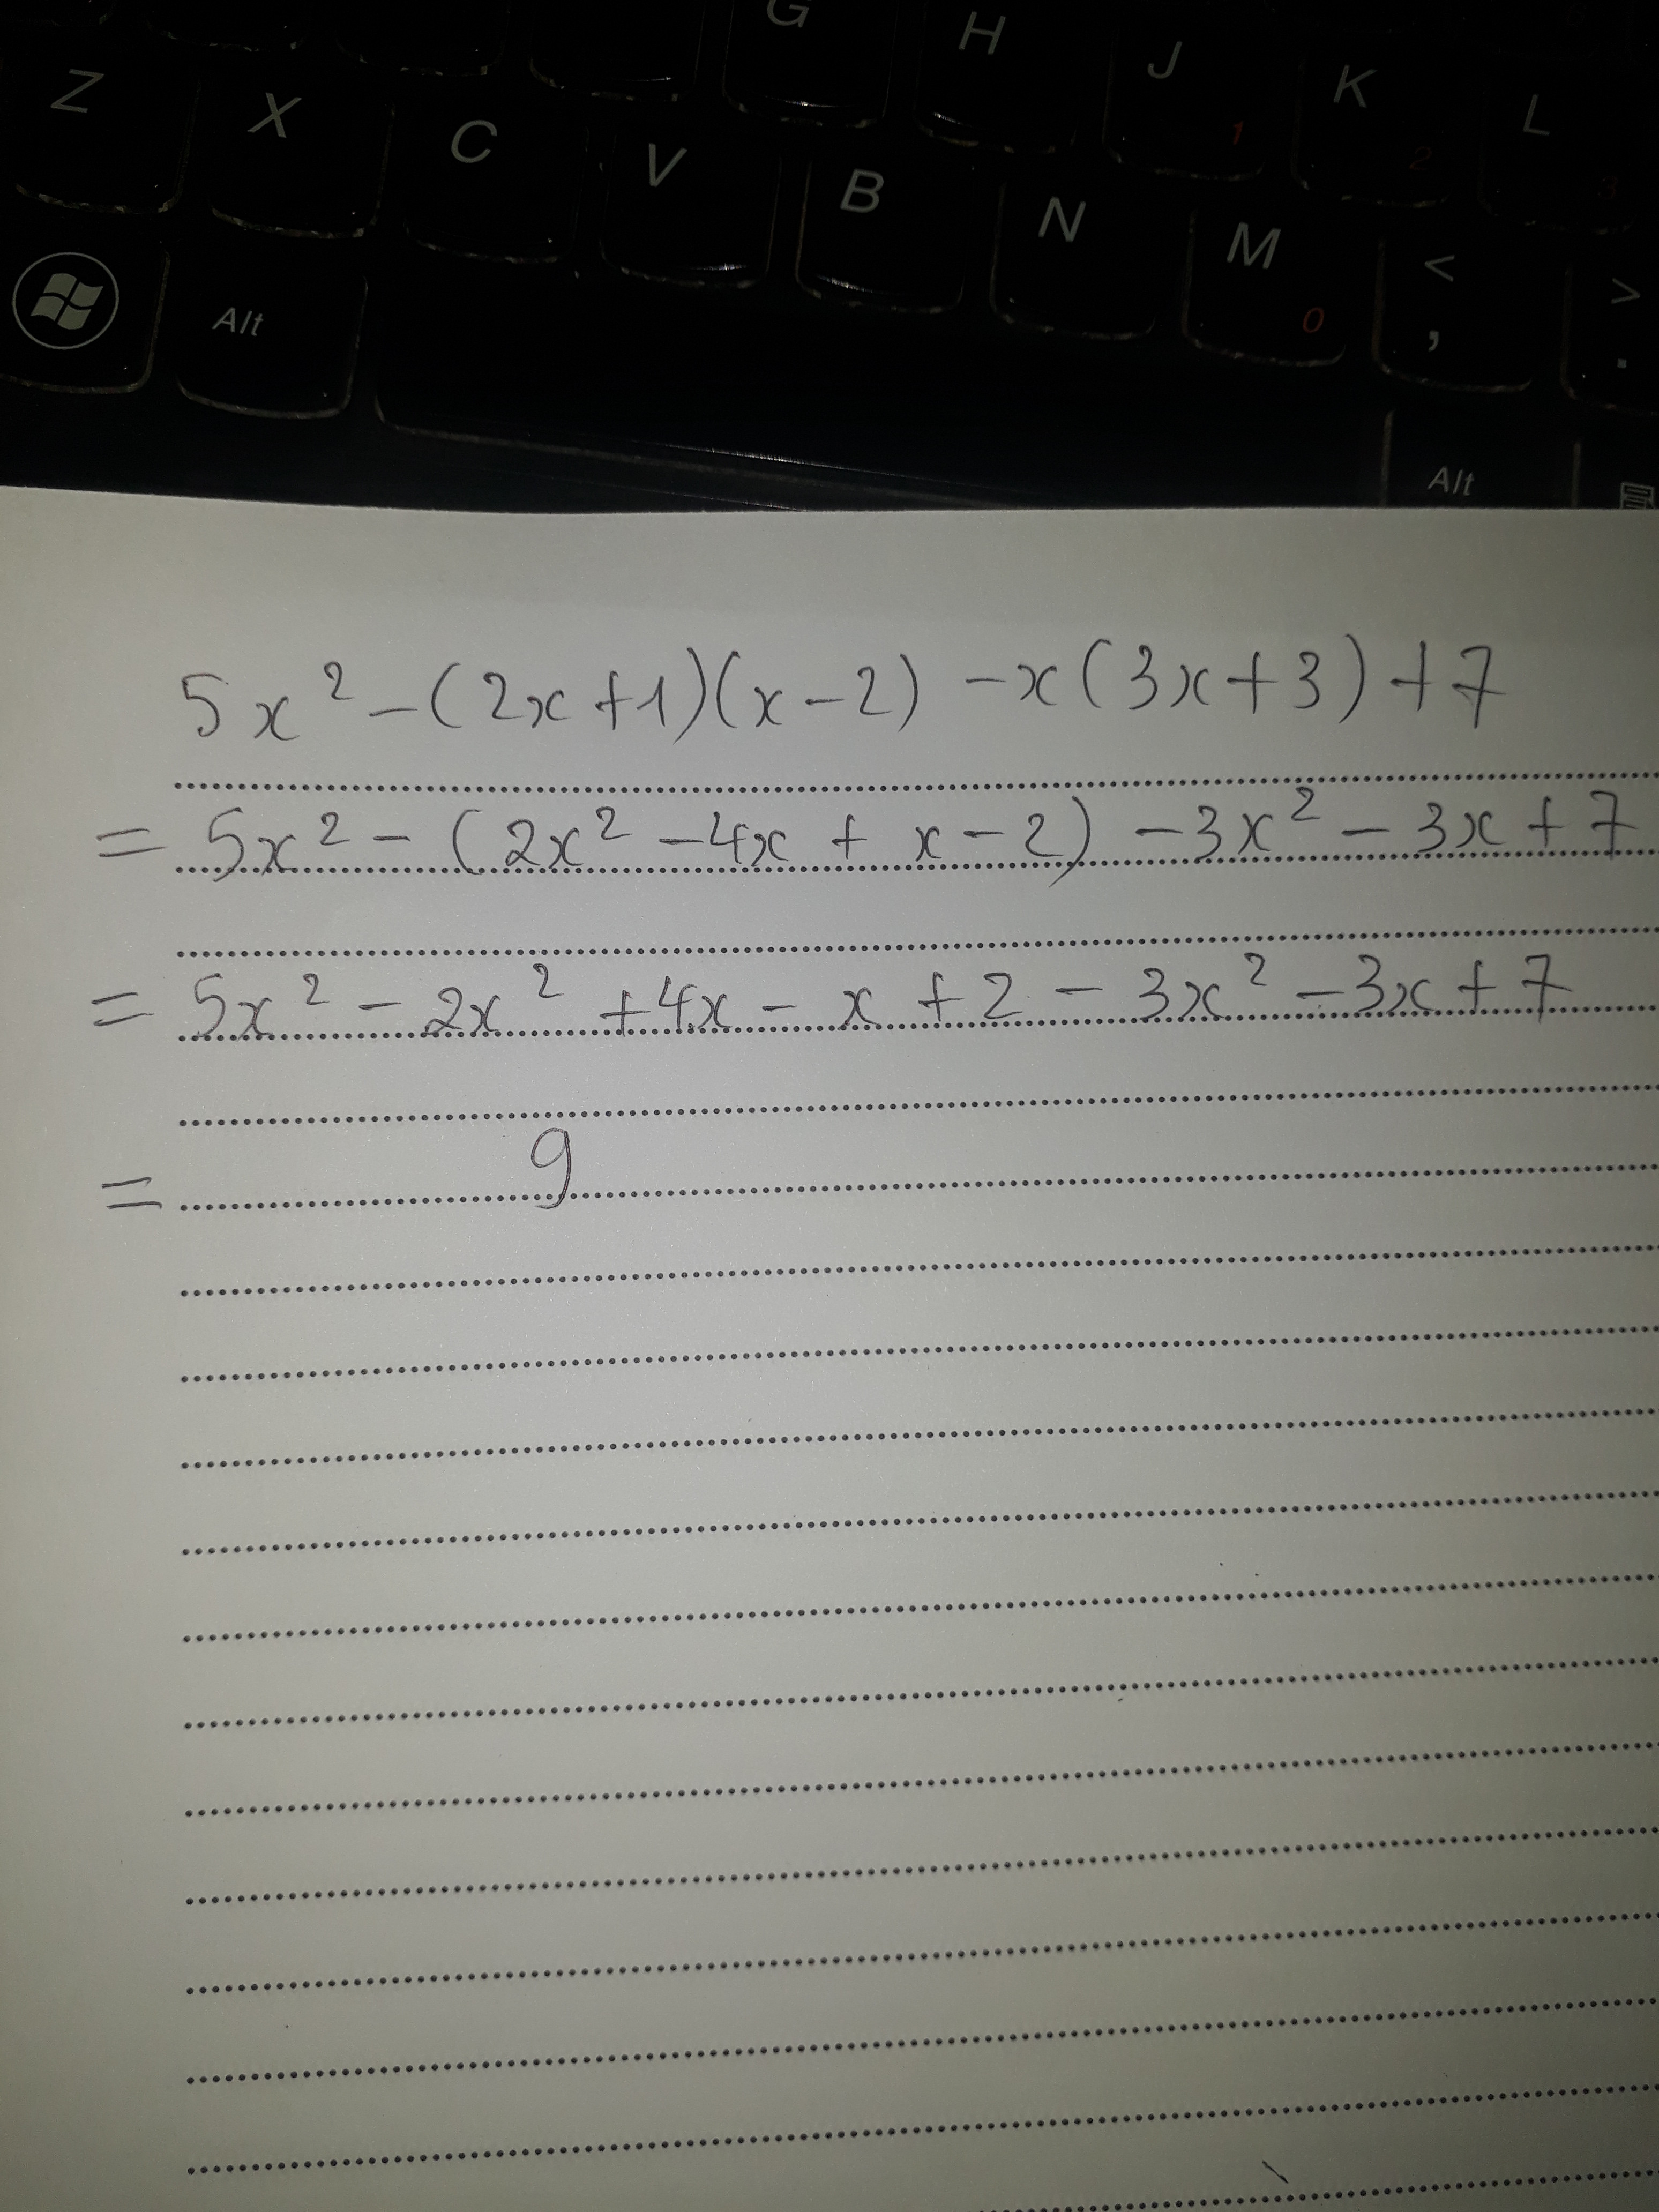 G H J 1 K 2 L 3
Z X C V B N M 0 < , > .
Alt Alt
5x² - (2x+1)(x-2) - x(3x+3) + 7
= 5x² - (2x² - 4x + x - 2) - 3x² - 3x + 7
= 5x² - 2x² + 4x - x + 2 - 3x² - 3x + 7
= 9